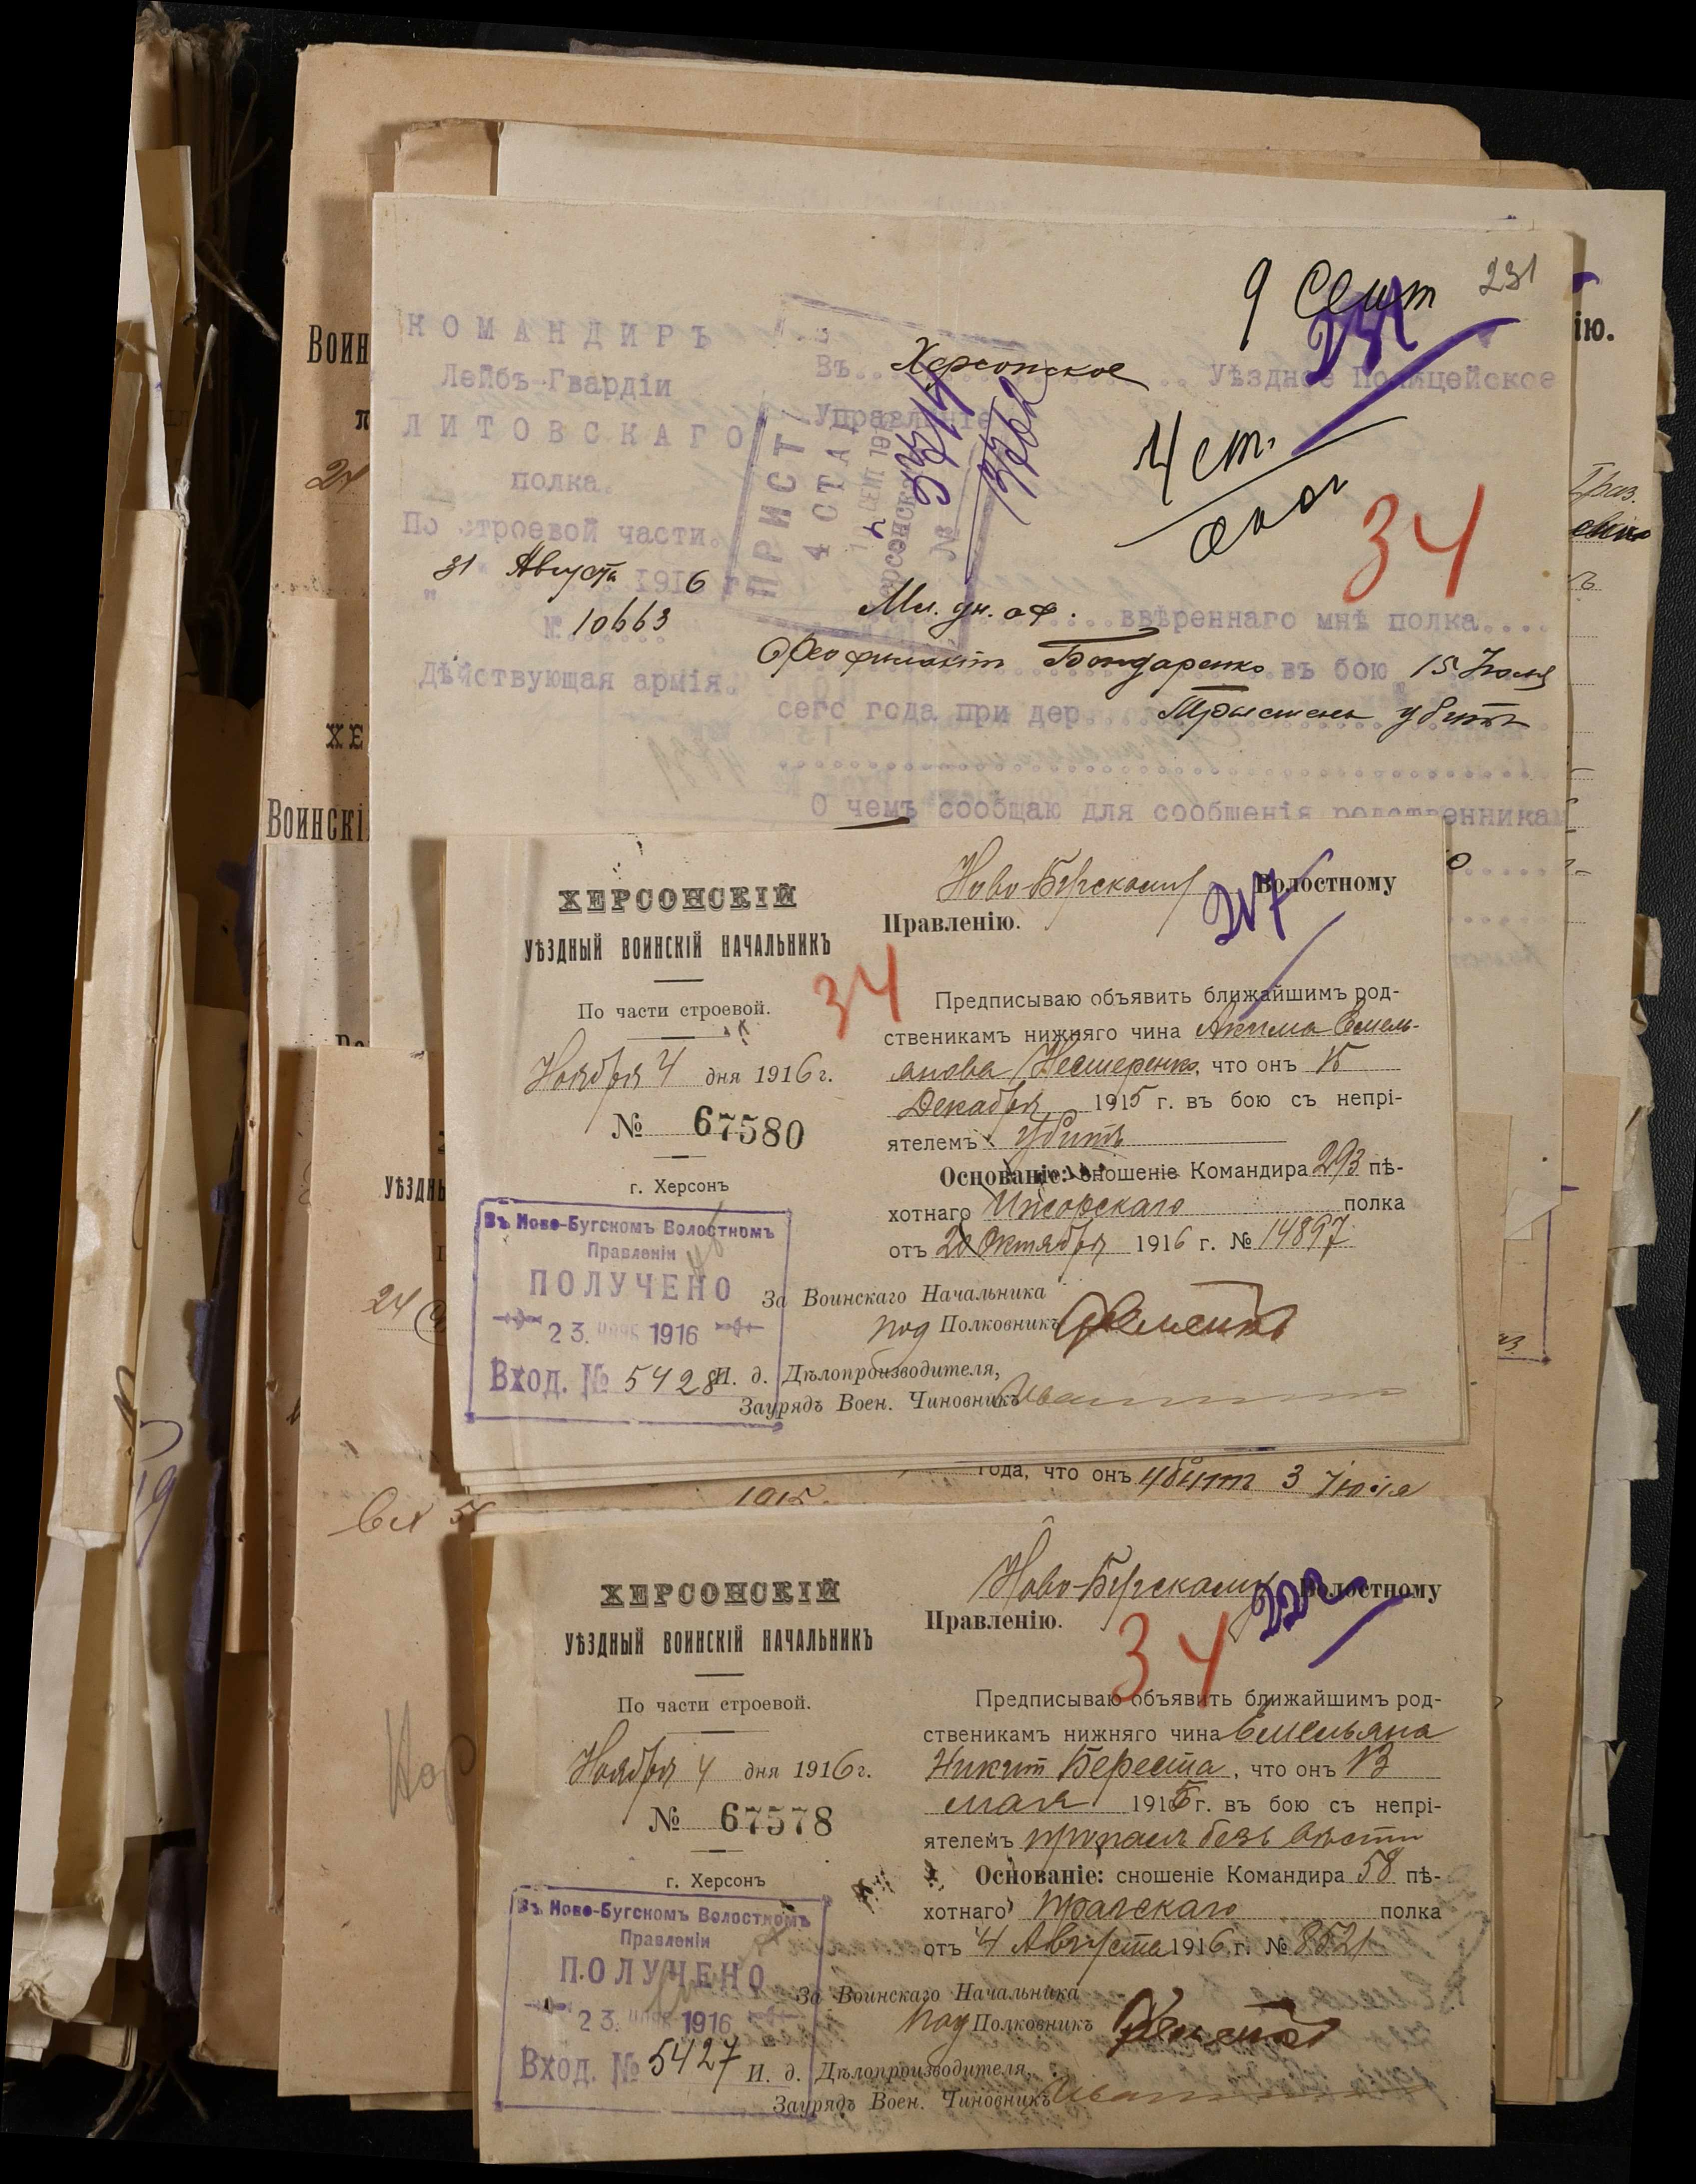 9 Сент 231
231
КОМАНДИРЪ
Лейбъ-Гвардіи
ЛИТОВСКАГО
полка.
По строевой части.
31 Августа 1916 г.
№ 10663
Дѣйствующая армія.
Въ Херсонское Уѣздное Полицейское
Управленіе
ПРИСТ
4 СТАН
СЕНТ 191
Херсонска
№
4 ст.
34
Мл. ун. оф. ввѣреннаго мнѣ полка
Феофилактъ Бондаренко въ бою 15 Іюля
сего года при дер. Трыстень убитъ
О чемъ сообщаю для сообщенія родственникам
ХЕРСОНСКІЙ
УѢЗДНЫЙ ВОИНСКІЙ НАЧАЛЬНИКЪ
По части строевой.
Ноября 4 дня 1916 г.
№ 67580
г. Херсонъ
34
Ново-Бугскому Волостному
217
Правленію.
Предписываю объявить ближайшимъ род-
ственикамъ нижняго чина Акима Емель-
янова Нестеренко, что онъ 15
Декабря 1915 г. въ бою съ непрі-
ятелемъ убитъ
Основаніе: сношеніе Командира 293 пѣ-
хотнаго Ижорскаго полка
отъ 20 Октября 1916 г. № 14897
За Воинскаго Начальника
под Полковникъ
И. д. Дѣлопроизводителя,
Заурядъ Воен. Чиновникъ
Въ Ново-Бугскомъ Волостномъ
Правленіи
ПОЛУЧЕНО
23. НОЯБ 1916
Вход. № 5428
года, что онъ убитъ 3 Іюля
1915
ХЕРСОНСКІЙ
УѢЗДНЫЙ ВОИНСКІЙ НАЧАЛЬНИКЪ
По части строевой.
Ноября 4 дня 1916 г.
№ 67578
г. Херсонъ
Ново-Бугскому Волостному
222
Правленію.
34
Предписываю объявить ближайшимъ род-
ственикамъ нижняго чина Емельяна
Никит Береста, что онъ 13
мая 1915 г. въ бою съ непрі-
ятелемъ пропалъ безъ вѣсти
Основаніе: сношеніе Командира 58 пѣ-
хотнаго Прагскаго полка
отъ 4 Августа 1916 г. № 8521
За Воинскаго Начальника
под Полковникъ
И. д. Дѣлопроизводителя,
Заурядъ Воен. Чиновникъ
Въ Ново-Бугскомъ Волостномъ
Правленіи
ПОЛУЧЕНО
23. НОЯБ 1916
Вход. № 5427
Воин
24
ХЕ
Воинскі
УѢЗДНЫ
24
ію.